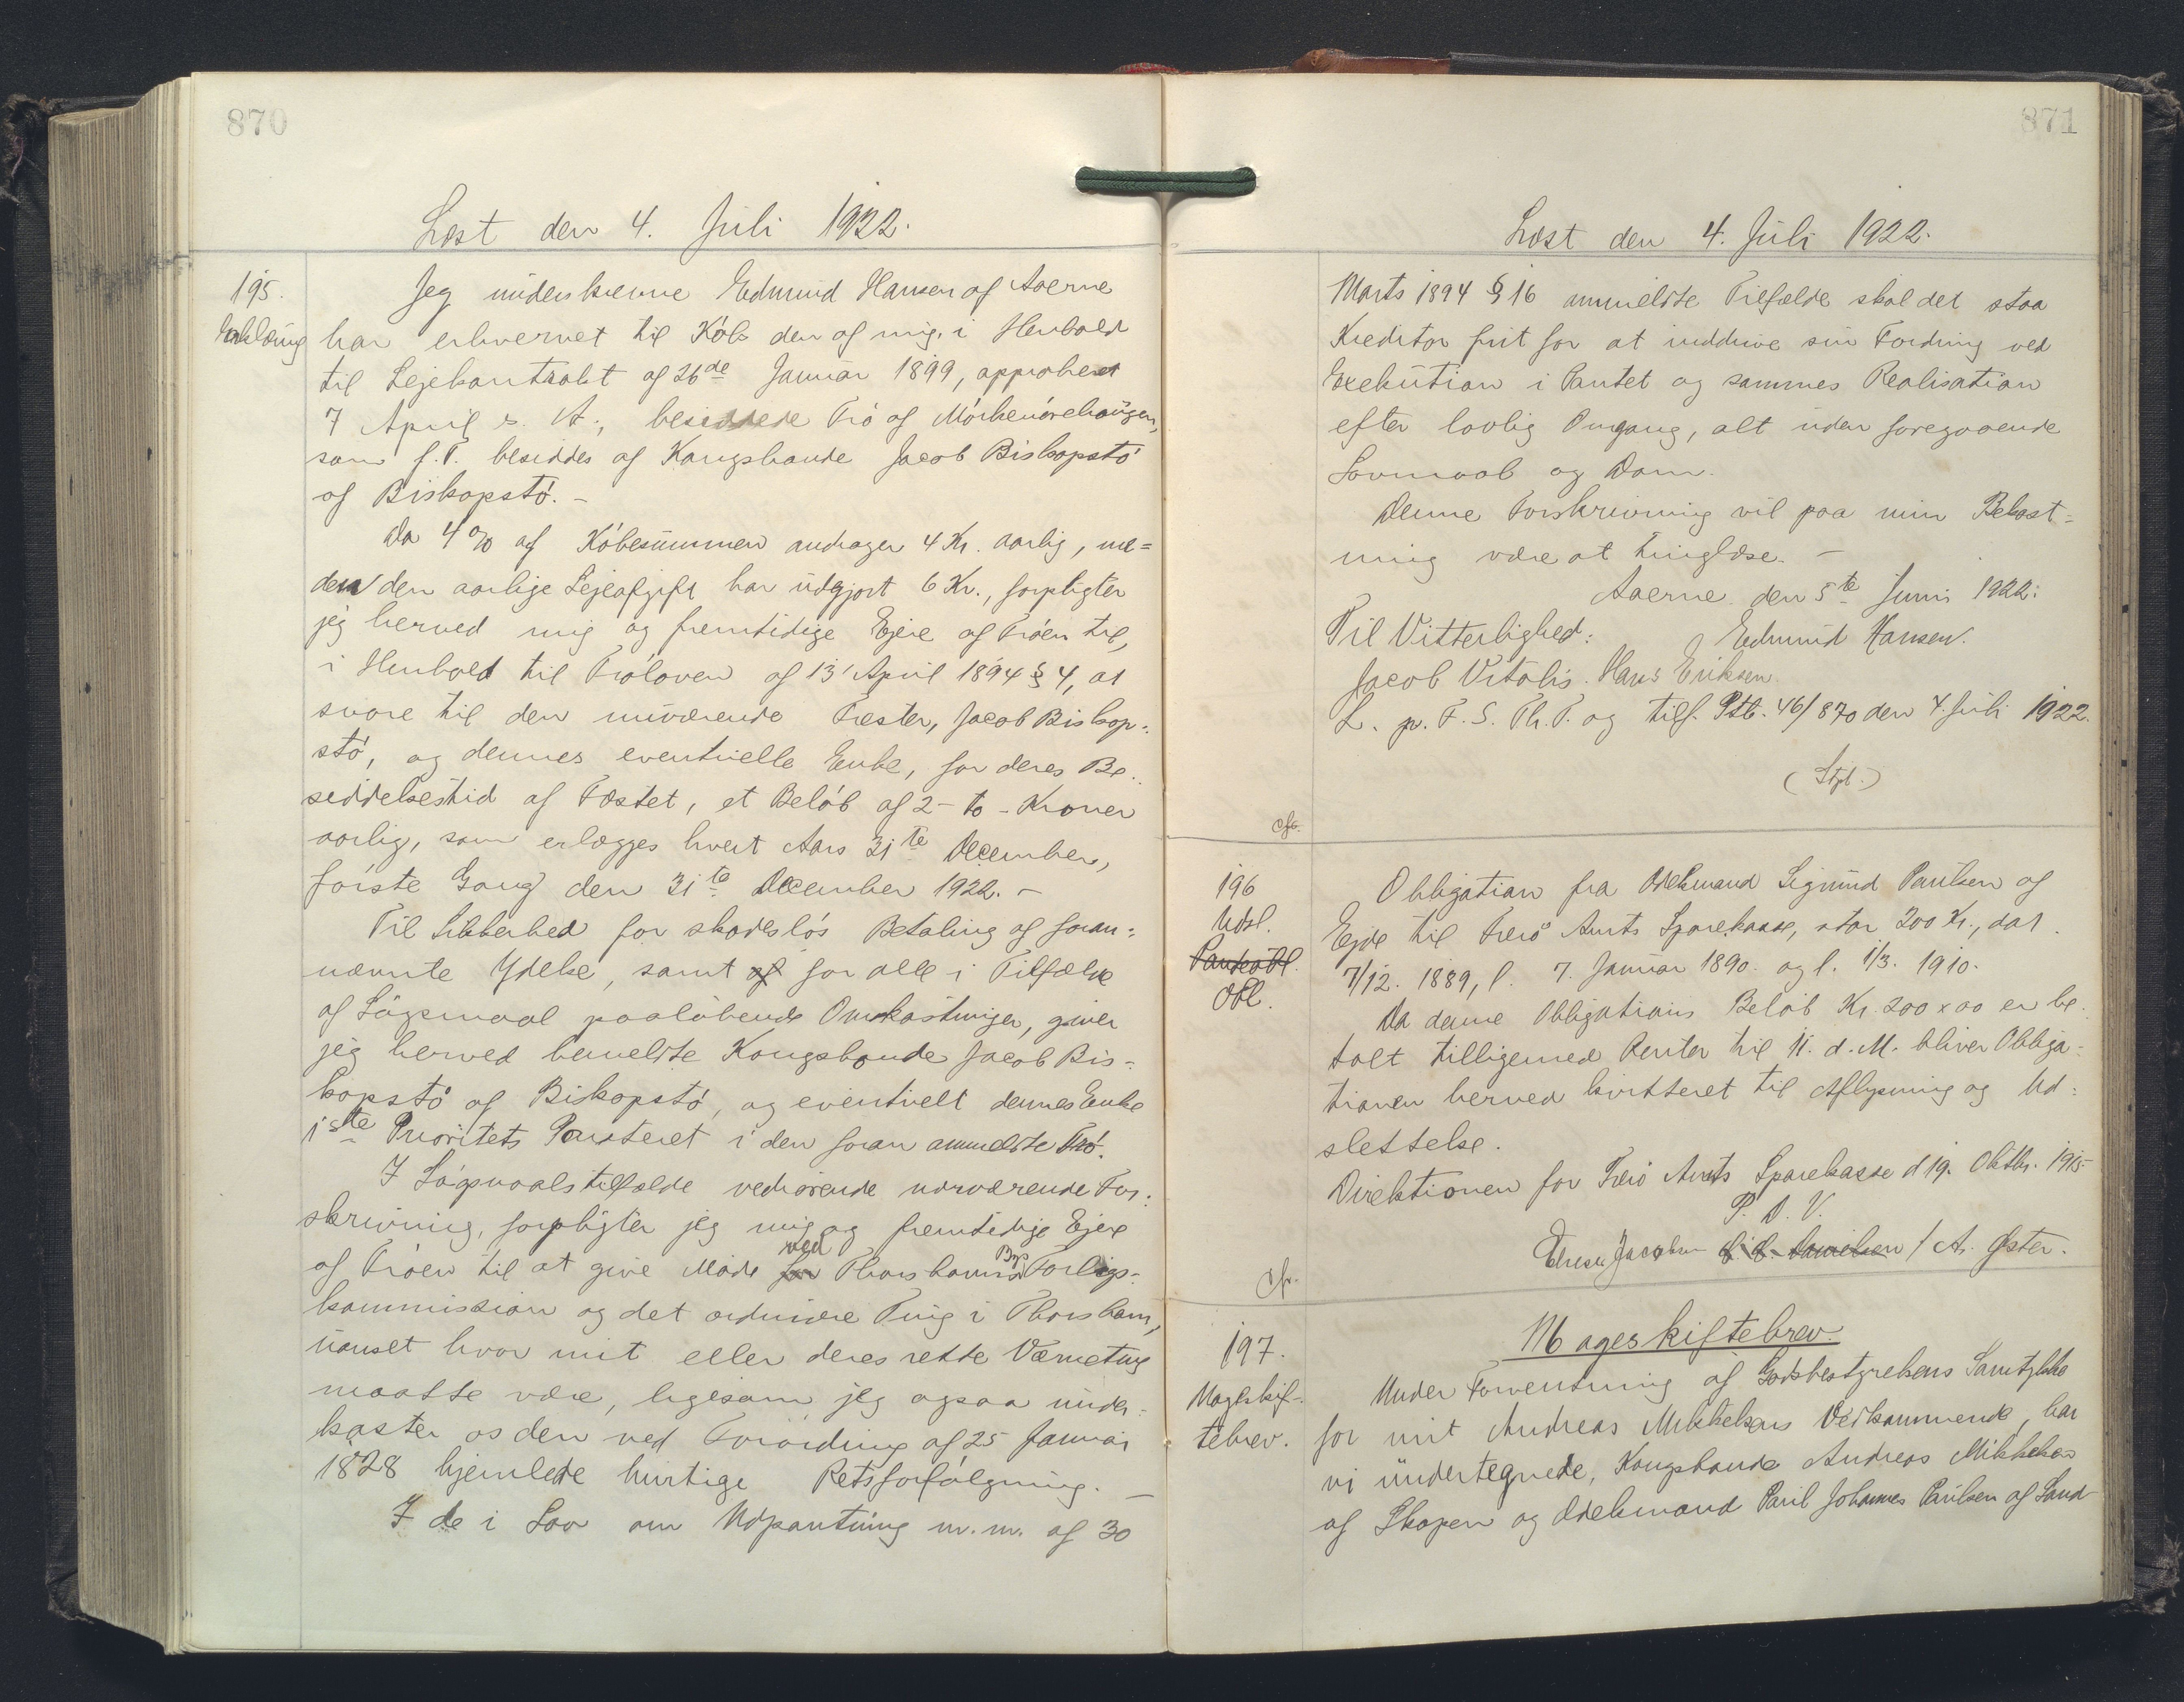 870
Læst den 4. Juli 1922.
195.
Erklæring
Jeg underskrevne Edmund Hansen af Aaerne
har erhvervet til Køb den af mig, i Henhold
til Lejekontrakt af 26de Januar 1899, approberet
7 April s. A., besiddede Trø af Mørkenørehaugen,
som f.T. besiddes af Kongsbonde Jacob Biskopstø
af Biskopstø. -
Da 4% af Købesummen andrager 4 Kr. aarlig, me=
dens den aarlige Lejeafgift har udgjort 6 Kr., forpligter
jeg herved mig og fremtidige Ejere af Trøen til,
i Henhold til Trøloven af 13' April 1894 § 4, at
svare til den nuværende Fæster, Jacob Biskop=
stø, og dennes eventuelle Enke, for deres Be=
siddelsestid af Fæstet, et Beløb af 2 - to - Kroner
aarlig, som erlægges hvert Aars 31te December,
første Gang den 31te December 1922. -
Til Sikkerhed for skadesløs Betaling af foran=
nævnte Ydelse, samt af for alle i Tilfælde
af Søgsmaal paaløbende Omkostninger, giver
jeg herved bemeldte Kongsbonde Jacob Bis=
kopstø af Biskopstø, og eventuelt dennes Enke
1ste Prioritets Panteret i den foran anmeldte Trø.
I Søgsmaalstilfælde vedrørende nærværende For=
skrivning, forpligter jeg mig og fremtidige Ejere
af Trøen til at give Møde for ved Thorshavns Bys Forligs=
kommission og det ordinære Ting i Thorshavn,
uanset hvor mit eller deres rette Værneting
maatte være, ligesom jeg ogsaa under=
kaster os den ved Forordning af 25 Januar
1828 hjemlede hurtige Retsforfølgning. -
I de i Lov om Udpantning m.m. af 30
871
Læst den 4. Juli 1922.
Marts 1894 § 16 ommeldte Tilfælde skal det staa
Kreditor frit for at inddrive sin Fordring ved
Exekution i Pantet og sammes Realisation
efter lovlig Omgang, alt uden foregaaende
Lovmaal og Dom.
Denne Forskrivning vil paa min Bekost=
ning være at tinglæse. -
Aaerne den 5te Juni 1922.
Til Vitterlighed: Edmund Hansen.
Jacob Vitalis. Hans Eriksen.
L. p. F. S. Th. T. og tilf. Ptb. 46/870 den 4. Juli 1922.
(Stpl.)
Cfr.
196
Udsl.
Panteobl.
Obl.
Obligation fra Odelsmand Sigmund Paulsen af
Ejde til Færø Amts Sparekasse, stor 200 Kr., dat.
7/12. 1889, l. 7. Januar 1890. og l. 1/3. 1910.
Da denne Obligations Beløb Kr. 200 x 00 er be=
talt tilligemed Renter til 11. d. M. bliver Obliga=
tionen herved kvitteret til Aflysning og Ud=
slettelse.
Direktionen for Færø Amts Sparekasse d 19. Oktbr. 1915
P. D. V.
Jacobsen / A. Øster.
Cfr.
197.
Mageskif-
tebrev.
Mageskiftebrev.
Under Forventning af Godsbestyrelsens Samtykke
for mit Andreas Mikkelsens Vedkommende, har
vi undertegnede, Kongsbonde Andreas Mikkelsen
af Skopen og Odelsmand Paul Johannes Paulsen af Sand